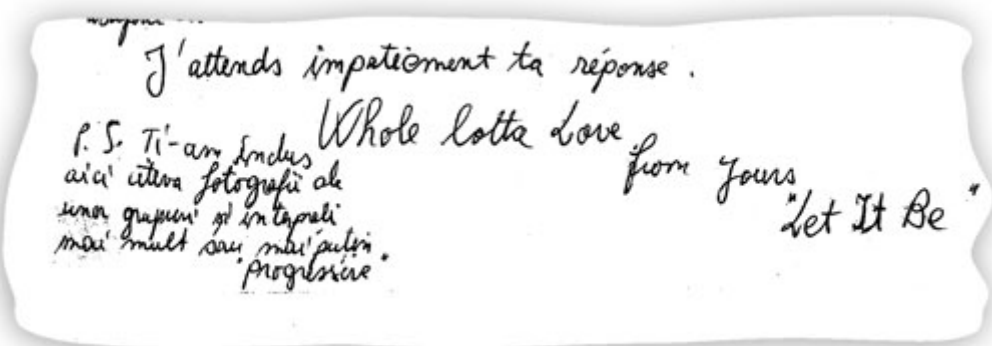 J'attends impatiemment ta réponse.
Whole lotta Love
from yours
"Let It Be"
P.S. Ti-am inclus
aici cîteva fotografii ale
unor grupuri și interpreti
mai mult sau mai puțin
"progressive"